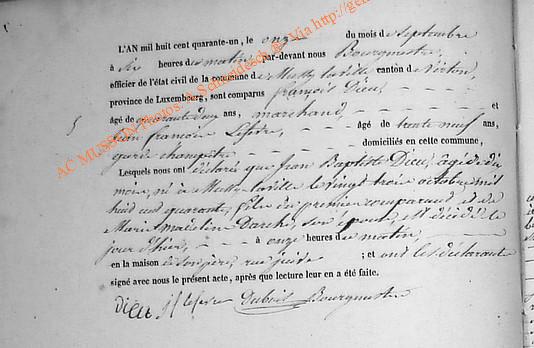 L'AN mil huit cent quarante-un, le onze du mois de septembre
à six heures du matin, par-devant nous Bourgmestre,
officier de l'état civil de la commune de Mussy la ville canton de Virton,
province de Luxembourg, sont comparus françois Dieu,
âgé de quarante deux ans, marchand, et
5 Jean françois Lefevre, âgé de trente neuf ans,
garde champêtre domiciliés en cette commune,
Lesquels nous ont déclaré que Jean Baptiste Dieu, âgé de dix
mois, né à Mussy la ville le vingt trois octobre mil
huit cent quarante, fils du premier comparant et de
Marie madeleine Darche, son épouse, est décédé le
jour d'hier, à onze heures du matin,
en la maison de son père, rue ; et ont les déclarants
signé avec nous le présent acte, après que lecture leur en a été faite.
Dieu Jf lefevre Dubois Bourgmestre
AC MUSSON Photos: A. Schneidesch @ Via http://gen